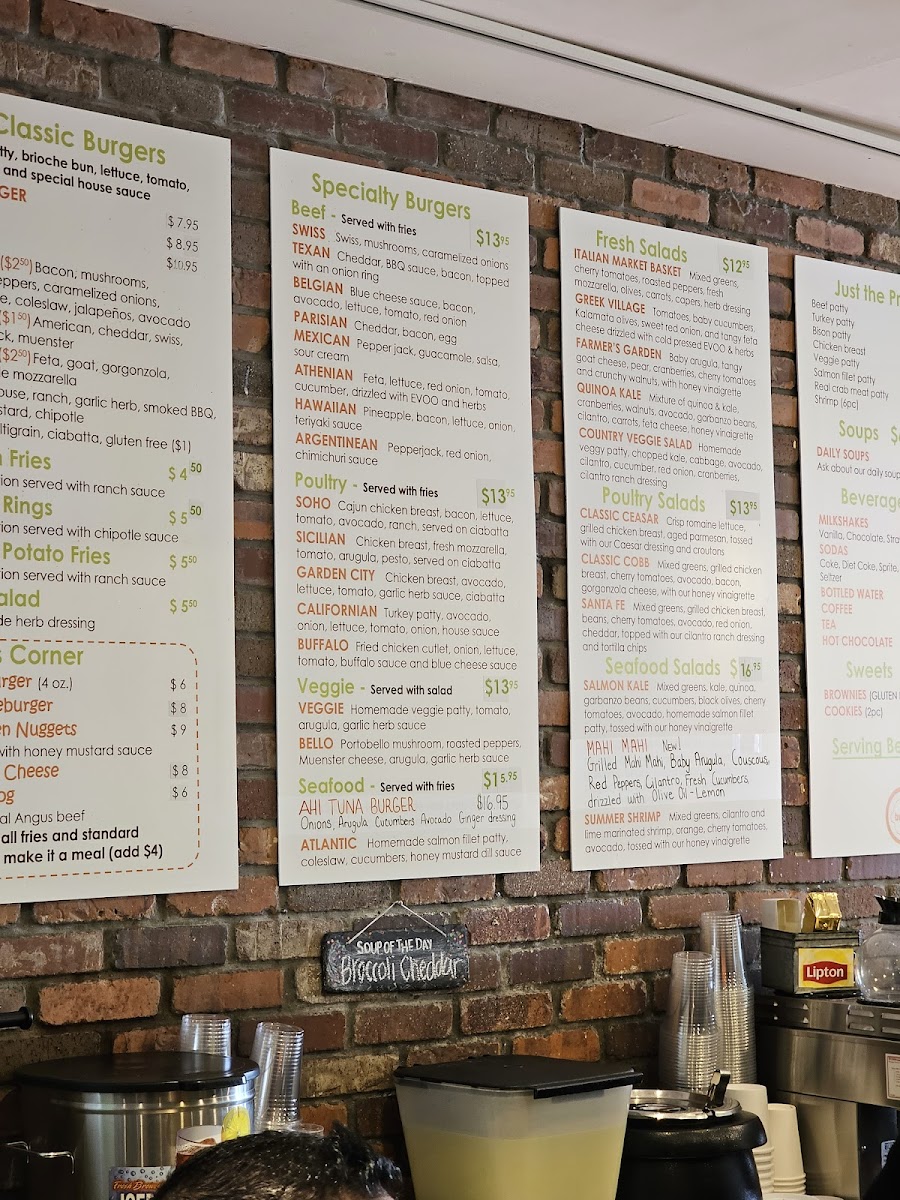 Classic Burgers
tty, brioche bun, lettuce, tomato,
and special house sauce
GER
$7.95
$8.95
$10.95
($2⁵⁰) Bacon, mushrooms,
eppers, caramelized onions,
e, coleslaw, jalapeños, avocado
($1⁵⁰) American, cheddar, swiss,
ck, muenster
($2⁵⁰) Feta, goat, gorgonzola,
le mozzarella
ouse, ranch, garlic herb, smoked BBQ,
stard, chipotle
ltigrain, ciabatta, gluten free ($1)
Fries $4⁵⁰
ion served with ranch sauce
Rings $5⁵⁰
tion served with chipotle sauce
Potato Fries $5⁵⁰
tion served with ranch sauce
alad $5⁵⁰
de herb dressing
s Corner
urger (4 oz.) $6
eburger $8
en Nuggets $9
with honey mustard sauce
Cheese $8
og $6
al Angus beef
all fries and standard
make it a meal (add $4)
Specialty Burgers
Beef - Served with fries $13⁹⁵
SWISS Swiss, mushrooms, caramelized onions
TEXAN Cheddar, BBQ sauce, bacon, topped
with an onion ring
BELGIAN Blue cheese sauce, bacon,
avocado, lettuce, tomato, red onion
PARISIAN Cheddar, bacon, egg
MEXICAN Pepper jack, guacamole, salsa,
sour cream
ATHENIAN Feta, lettuce, red onion, tomato,
cucumber, drizzled with EVOO and herbs
HAWAIIAN Pineapple, bacon, lettuce, onion,
teriyaki sauce
ARGENTINEAN Pepperjack, red onion,
chimichuri sauce
Poultry - Served with fries $13⁹⁵
SOHO Cajun chicken breast, bacon, lettuce,
tomato, avocado, ranch, served on ciabatta
SICILIAN Chicken breast, fresh mozzarella,
tomato, arugula, pesto, served on ciabatta
GARDEN CITY Chicken breast, avocado,
lettuce, tomato, garlic herb sauce, ciabatta
CALIFORNIAN Turkey patty, avocado,
onion, lettuce, tomato, onion, house sauce
BUFFALO Fried chicken cutlet, onion, lettuce,
tomato, buffalo sauce and blue cheese sauce
Veggie - Served with salad $13⁹⁵
VEGGIE Homemade veggie patty, tomato,
arugula, garlic herb sauce
BELLO Portobello mushroom, roasted peppers,
Muenster cheese, arugula, garlic herb sauce
Seafood - Served with fries $15.95
AHI TUNA BURGER $16.95
Onions, Arugula Cucumbers Avocado Ginger dressing
ATLANTIC Homemade salmon fillet patty,
coleslaw, cucumbers, honey mustard dill sauce
Fresh Salads $12⁹⁵
ITALIAN MARKET BASKET Mixed greens,
cherry tomatoes, roasted peppers, fresh
mozzarella, olives, carrots, capers, herb dressing
GREEK VILLAGE Tomatoes, baby cucumbers,
Kalamata olives, sweet red onion, and tangy feta
cheese drizzled with cold pressed EVOO & herbs
FARMER'S GARDEN Baby arugula, tangy
goat cheese, pear, cranberries, cherry tomatoes
and crunchy walnuts, with honey vinaigrette
QUINOA KALE Mixture of quinoa & kale,
cranberries, walnuts, avocado, garbanzo beans,
cilantro, carrots, feta cheese, honey vinaigrette
COUNTRY VEGGIE SALAD Homemade
veggy patty, chopped kale, cabbage, avocado,
cilantro, cucumber, red onion, cranberries,
cilantro ranch dressing
Poultry Salads $13⁹⁵
CLASSIC CEASAR Crisp romaine lettuce,
grilled chicken breast, aged parmesan, tossed
with our Caesar dressing and croutons
CLASSIC COBB Mixed greens, grilled chicken
breast, cherry tomatoes, avocado, bacon,
gorgonzola cheese, with our honey vinaigrette
SANTA FE Mixed greens, grilled chicken breast,
beans, cherry tomatoes, avocado, red onion,
cheddar, topped with our cilantro ranch dressing
and tortilla chips
Seafood Salads $16.⁹⁵
SALMON KALE Mixed greens, kale, quinoa,
garbanzo beans, cucumbers, black olives, cherry
tomatoes, avocado, homemade salmon filet
patty, tossed with our honey vinaigrette
MAHI MAHI New!
Grilled Mahi Mahi, Baby Arugula, Couscous,
Red Peppers, Cilantro, Fresh Cucumbers,
drizzled with Olive Oil-Lemon
SUMMER SHRIMP Mixed greens, cilantro and
lime marinated shrimp, orange, cherry tomatoes,
avocado, tossed with our honey vinaigrette
Just the Pr
Beef patty
Turkey patty
Bison patty
Chicken breast
Veggie patty
Salmon fillet patty
Real crab meat patty
Shrimp (6pc)
Soups $
DAILY SOUPS
Ask about our daily soup
Beverage
MILKSHAKES
Vanilla, Chocolate, Stra
SODAS
Coke, Diet Coke, Sprite,
Seltzer
BOTTLED WATER
COFFEE
TEA
HOT CHOCOLATE
Sweets
BROWNIES (GLUTEN
COOKIES (2pc)
Serving Be
SOUP OF THE DAY
Broccoli Cheddar
Lipton
Fresh Brewed
ICED